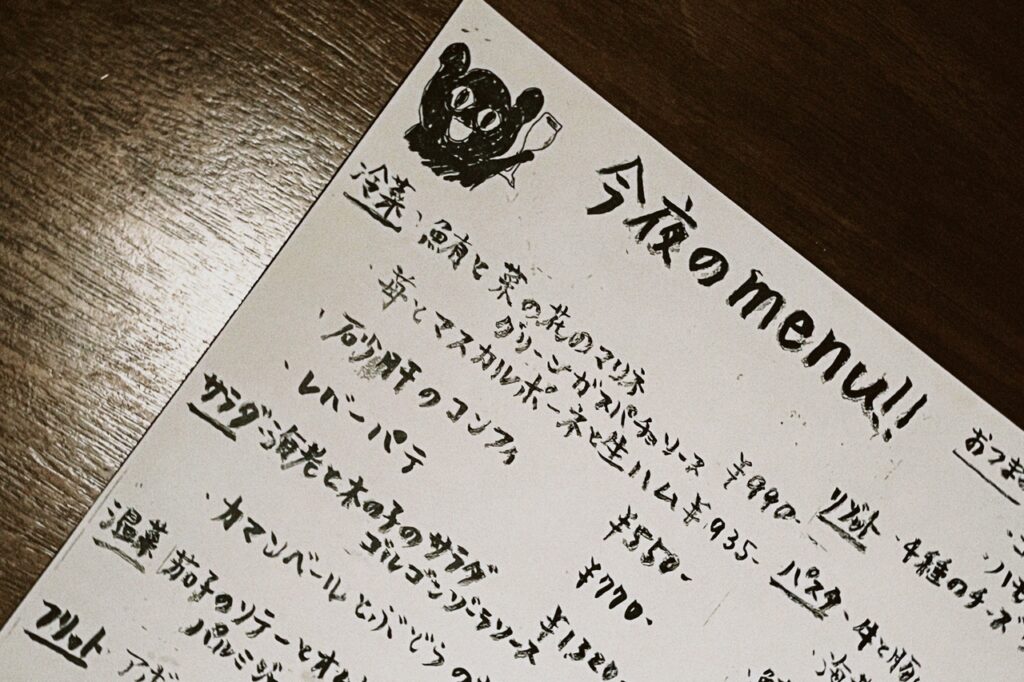 今夜のmenu!!
冷菜
・鮪と菜の花のマリネ
グリーンガスパチョソース ¥990-
・苺とマスカルポーネと生ハム ¥935-
・砂肝のコンフィ ¥550-
・レバーパテ ¥770-
サラダ
・海老と木の子のサラダ
ゴルゴンゾーラソース ¥1,320-
・カマンベールとぶどうの
温菜
茄子のソテーとオム
パルミジャ
フリット
・アボ
おつま
リゾット
・4種のチーズ
パスタ
・牛と
海